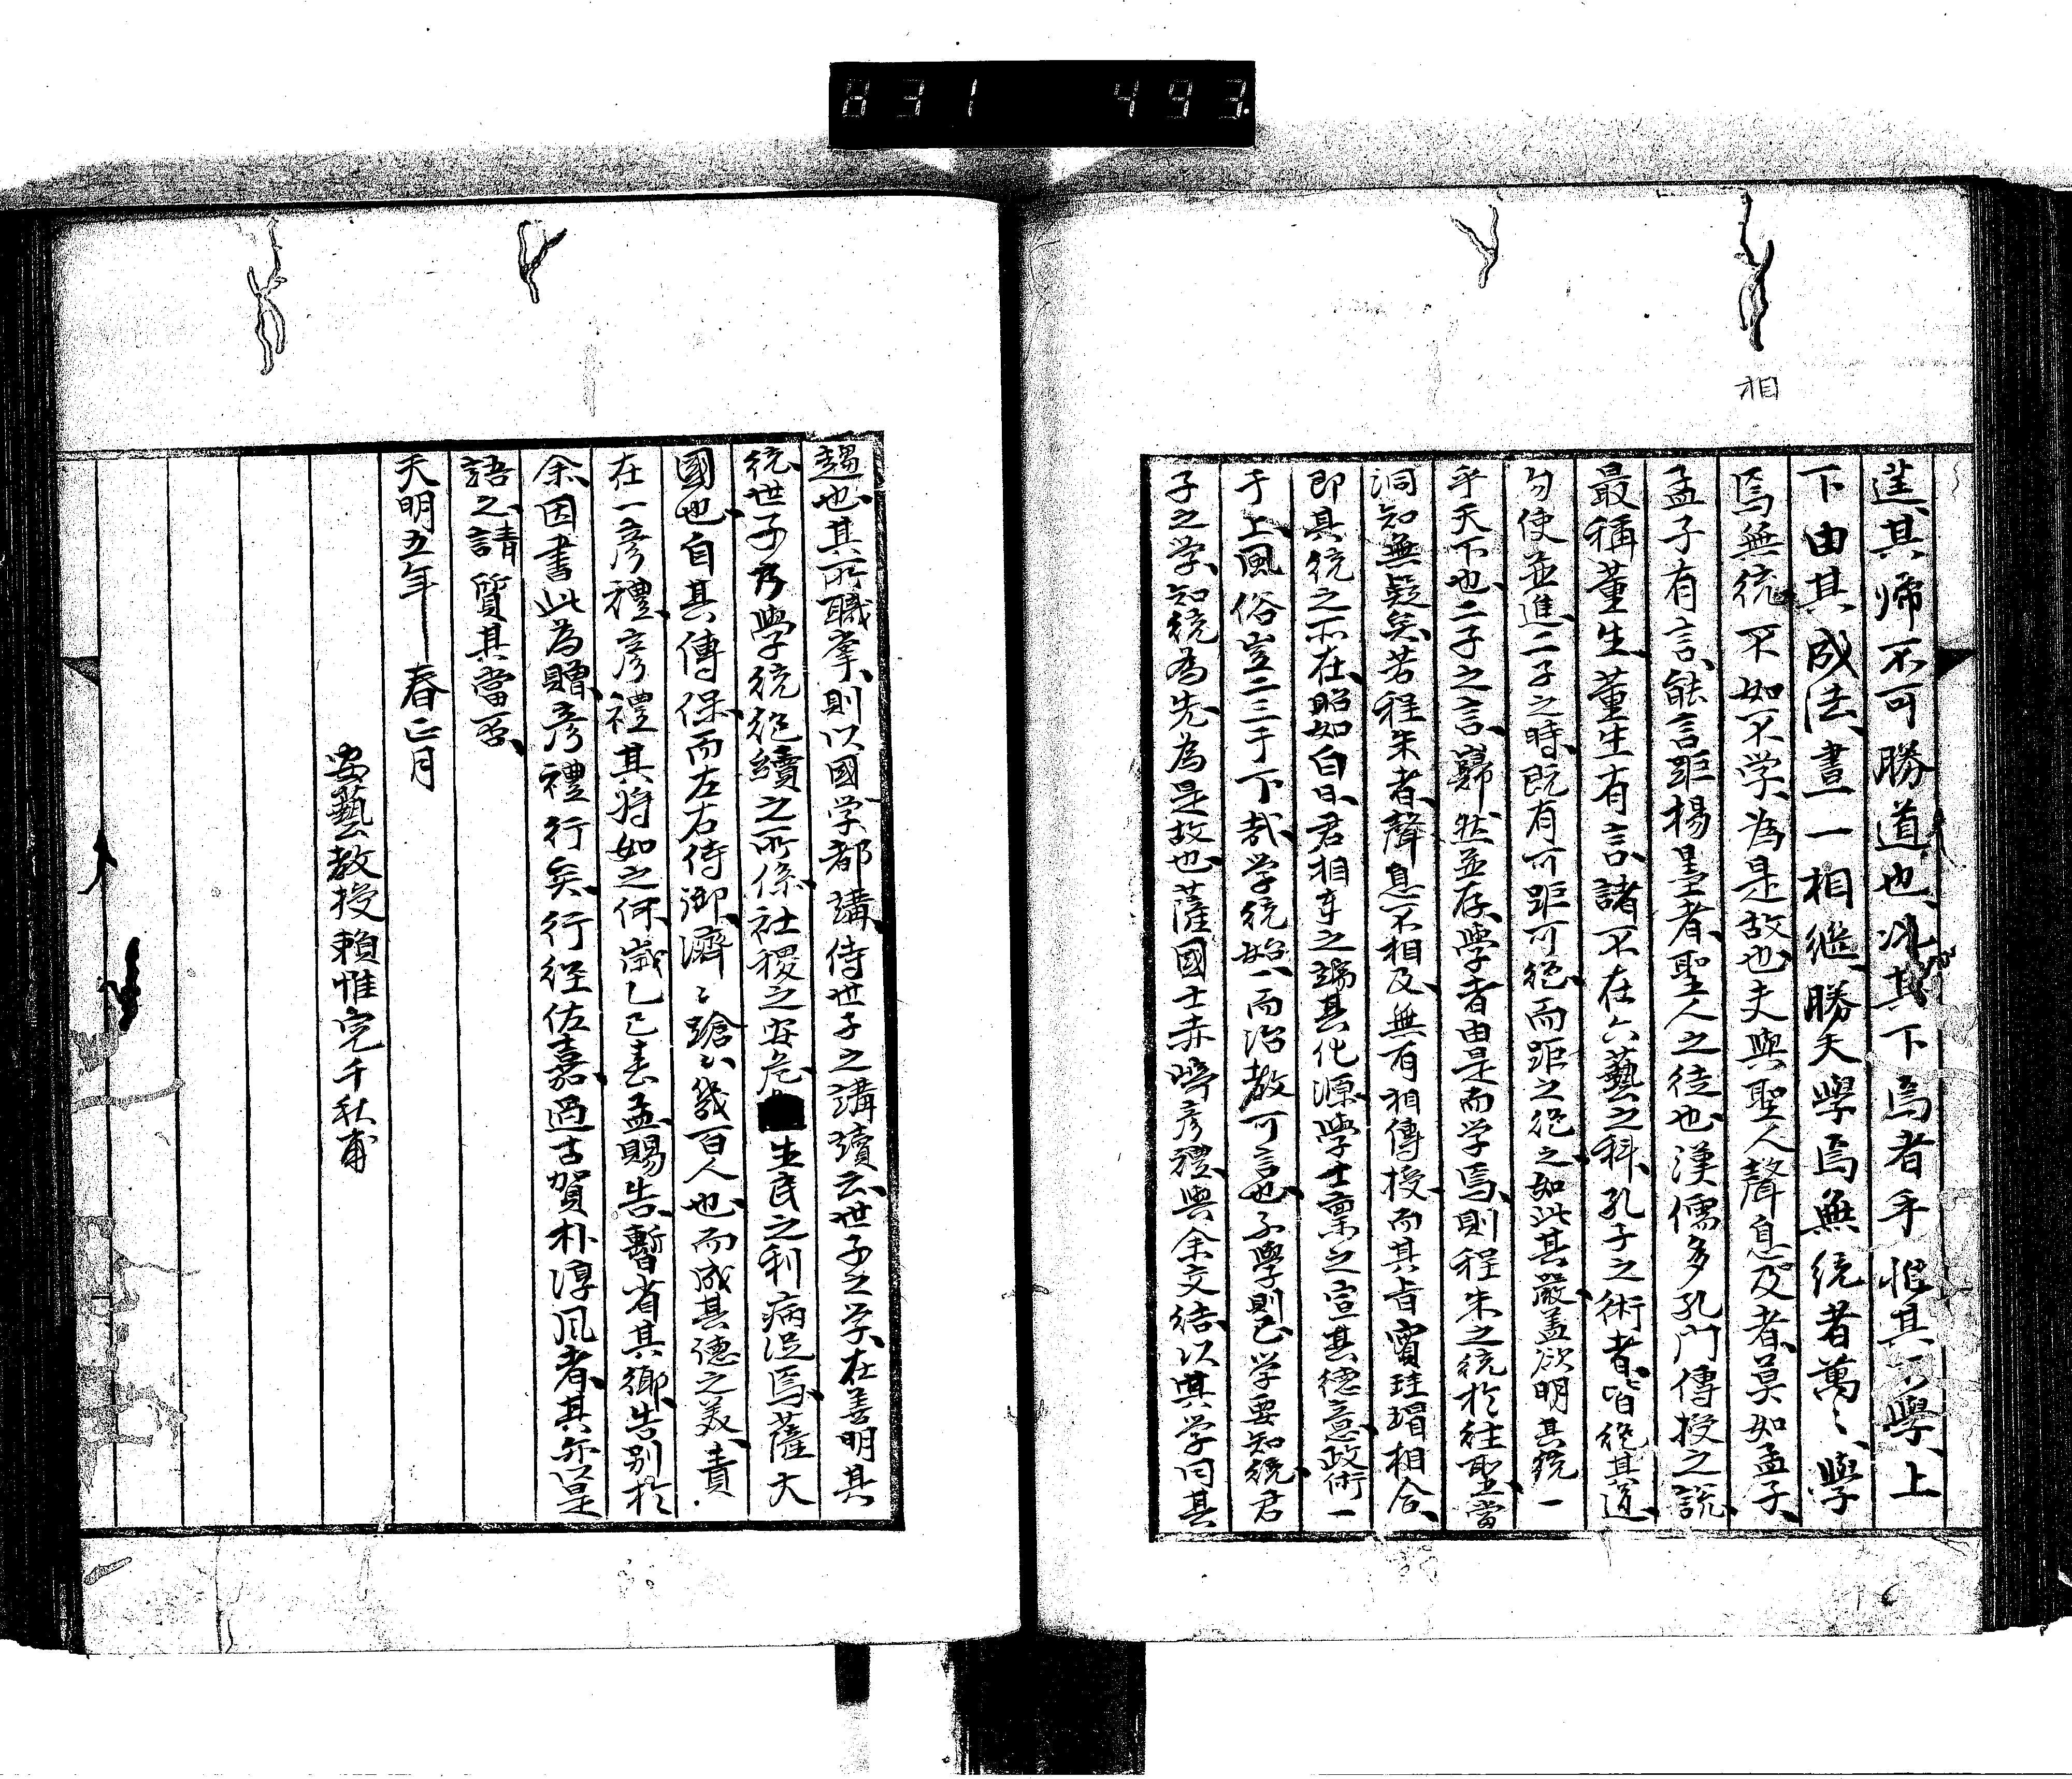 831 493
相
差、其帰不可勝道也、况其下焉者乎、惟其学、上
下由其成法、畫一相継、勝夫學焉無統者萬〻、學
焉無統、不如不学、為是故也、夫與聖人聲息及者、莫如孟子、
孟子有言、能言距楊墨者、聖人之徒也、漢儒多孔門傳授之説、
最稱董生、董生有言、諸不在六藝之科、孔子之術者、皆絶其道、
勿使並進、二子之時、既有可距可絶、而距之絶之、如此其嚴、盖欲明其統一
乎天下也、二子之言、巋然並存、學者由是而学焉、則程朱之統於往聖、當
洞知無疑矣、若程朱者、聲息不相及、無有相傳授、而其旨實珪瑁相合、
即其統之所在、昭如白日、君相奉之端其化源、學士稟之宣其德意、政術一
于上、風俗豈二三于下哉、学統始一、而治教可言也、不學則已、学要知統、君
子之学、知統為先、為是故也、薩國士赤﨑彦禮、與余交結、以其学同其
趨也、其所職掌、則以國学都講、侍世子之講讀云、世子之学、在善明其
統、世子乃學統絶續之所係、社稷之安危、生民之利病足焉、薩大
國也、自其傳保、而左右侍御、濟〻蹌〻、幾百人也、而成其德之美、責
在一彦禮、彦禮其将如之何、歳乙巳春孟、賜告、暫省其郷、告別於
余、因書此為贈、彦禮行矣、行経佐嘉、過古賀朴淳風者、其亦以是
語之、請質其當否、
天明五年 春正月
安藝教授頼惟完千秋甫